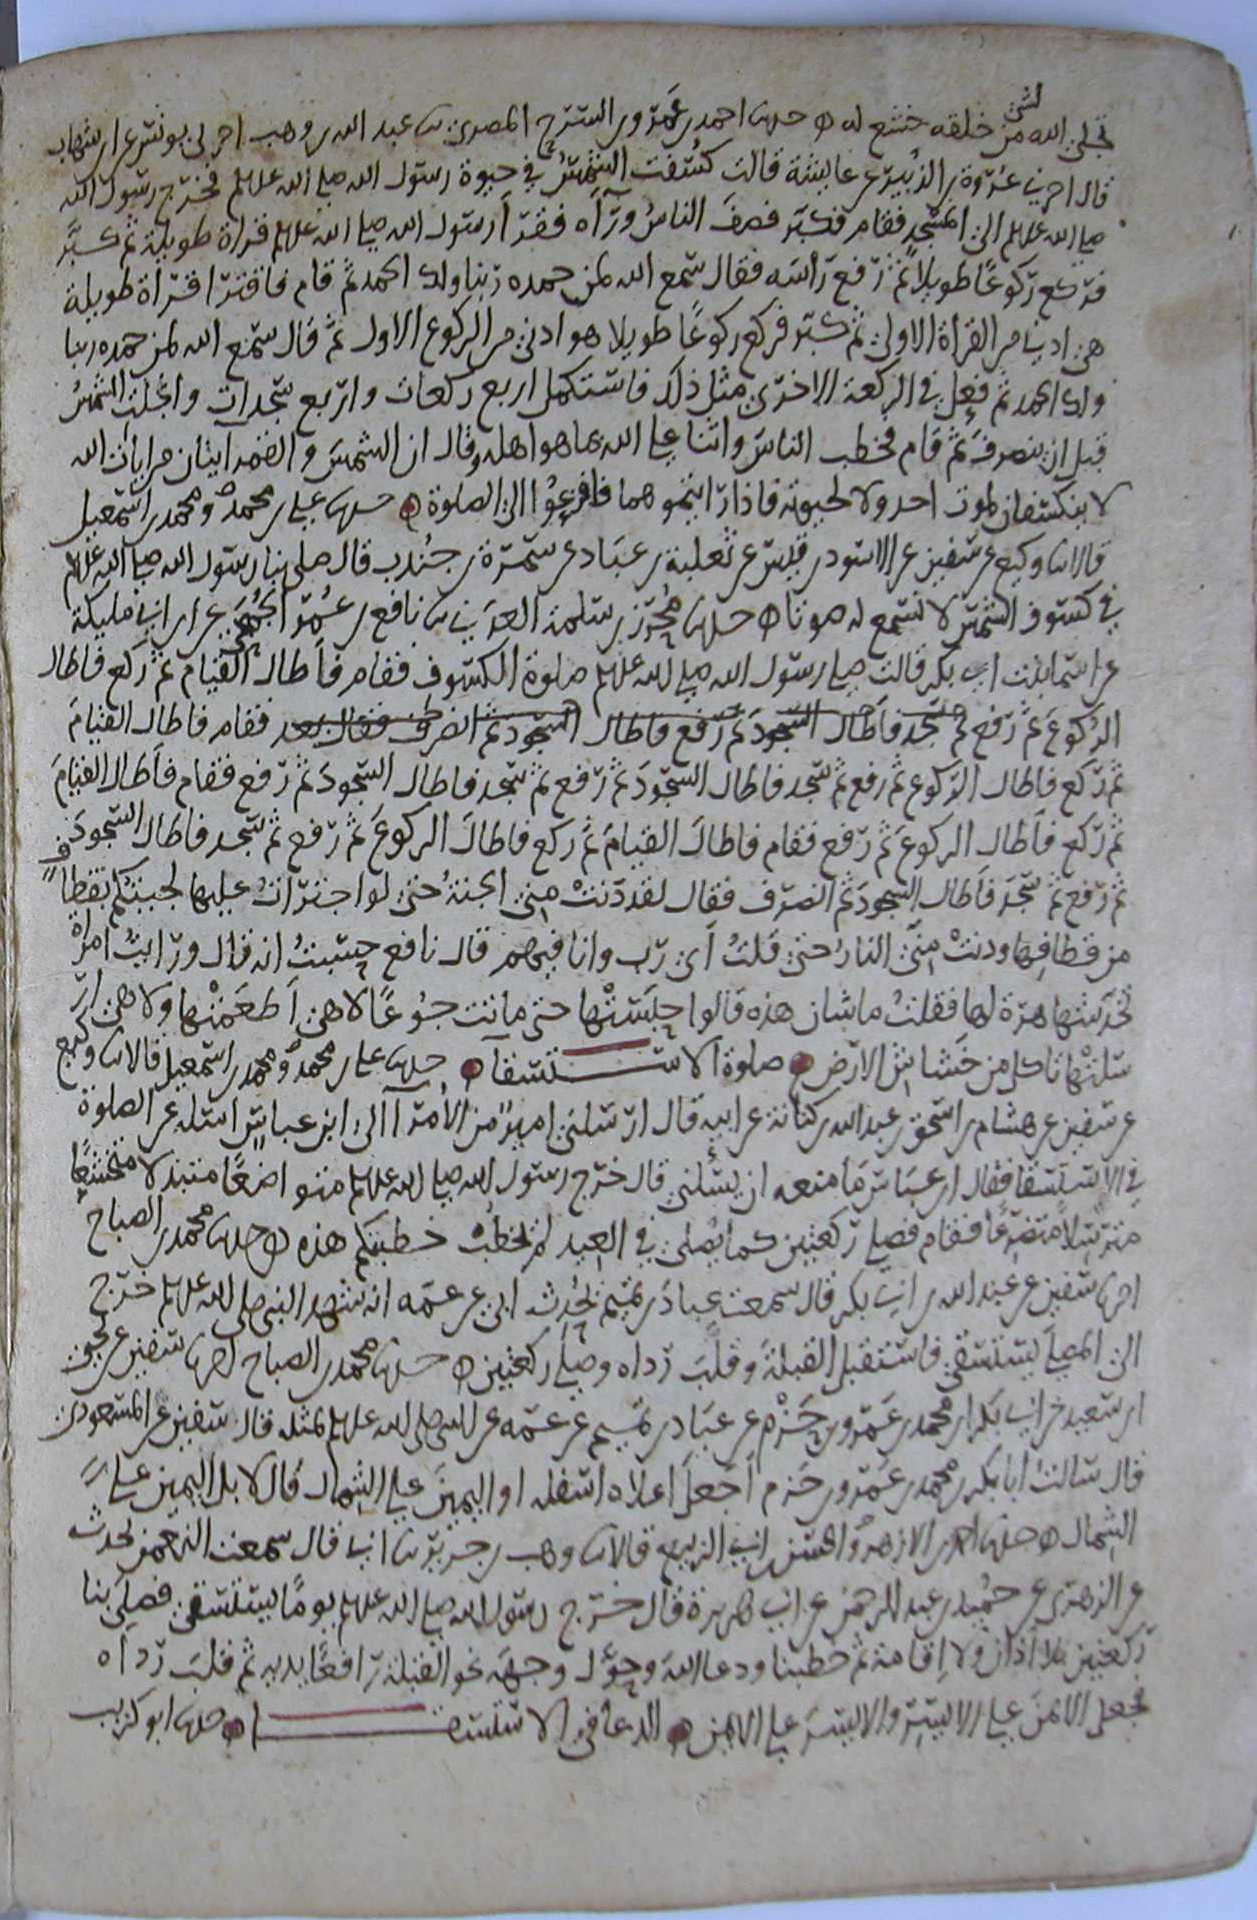 تجلى الله لشئ من خلقه خشع له ه حدثنا احمد بن عمرو بن السرح المصرى ثنا عبد الله بن وهب اخبرنى يونس عن ابن شهاب
قال اخبرنى عروة بن الزبير عن عايشة قالت كسفت الشمس في حيوة رسول الله صلى الله عليه وسلم فخرج رسول الله
صلى الله عليه وسلم الى المسجد فقام فكبر فصف الناس ورآه فقرأ رسول الله صلى الله عليه وسلم قراة طويلة ثم كبر
فركع ركوعًا طويلاً ثم رفع رأسه فقال سمع الله لمن حمده ربنا ولك الحمد ثم قام فاقترأ قراة طويلة
هى ادنى من القراة الاولى ثم كبر فركع ركوعًا طويلا هو ادنى من الركوع الاول ثم قال سمع الله لمن حمده ربنا
ولك الحمد ثم فعل في الركعة الاخرى مثل ذلك فاستكمل اربع ركعات واربع سجدات وانجلت الشمس
قبل ان ينصرف ثم قام فخطب الناس واثنا على الله بما هو اهله وقال ان الشمس والقمر ايتان من ايات الله
لا ينكسفان لموت احد ولا لحيوته فاذا رايتموهما فافزعوا الى الصلوة ه حدثنا على بن محمد ومحمد بن اسمعيل
قالا ثنا وكيع عن سفين عن الاسود بن قيس عن ثعلبة بن عباد عن سمرة بن جندب قال صلى بنا رسول الله صلى الله عليه وسلم
في كسوف الشمس لا نسمع له صوتا ه حدثنا محرز بن سلمة العدني ثنا نافع بن عمر الجمحى عن ابن ابي مليكة
عن اسما بنت ابي بكر قالت صلى رسول الله صلى الله عليه وسلم صلوة الكسوف فقام فاطال القيام ثم ركع فاطال
الركوع ثم رفع ثم سجد فاطال السجود ثم رفع فاطال السجود ثم انصرف فقال لقد فقام فاطال القيام
ثم ركع فاطال الركوع ثم رفع ثم سجد فاطال السجود ثم رفع ثم سجد فاطال السجود ثم رفع فقام فاطال القيام
ثم ركع فاطال الركوع ثم رفع فقام فاطال القيام ثم ركع فاطال الركوع ثم رفع ثم سجد فاطال السجود
ثم رفع ثم سجد فاطال السجود ثم انصرف فقال لقد دنت مني الجنة حتى لو اجترات عليها لجيتكم بقطاف
من قطافها ودنت مني النار حتى قلت أى رب وانا فيهم قال نافع حسبت انه قال ورايت امراة
تخدشها هرة لها فقلت ما شان هذه قالوا حبستها حتى ماتت جوعًا لا هى اطعمتها ولا هى ار
سلتها تاكل من خشاش الارض ه صلوة الاستسقا ه حدثنا على بن محمد ومحمد بن اسمعيل قالا ثنا وكيع
عن سفين عن هشام بن اسحق بن عبد الله بن كنانة عن ابيه قال ارسلنى امير من الأمرا الى ابن عباس اسئله عن الصلوة
في الاستسقا فقال ابن عباس ما منعه ان يسئلني قال خرج رسول الله صلى الله عليه وسلم متواضعًا متبذلا متخشعًا
مترسلاً متضرعًا فقام فصلى ركعتين كما يصلى في العيد لم يخطب خطبتكم هذه ه حدثنا محمد بن الصباح
اخبرنا سفين عن عبد الله بن ابي بكر قال سمعت عباد بن تميم يحدث ابى عن عمه انه شهد النبى صلى الله عليه وسلم خرج
الى المصلى يستسقى فاستقبل القبلة وقلب رداه وصلى ركعتين ه حدثنا محمد بن الصباح اخبرنا سفين عن يحيى
ابن سعيد عن ابي بكر بن محمد بن عمرو بن حزم عن عباد بن تميم عن عمه عن النبي صلى الله عليه وسلم بمثله قال سفين عن المسعودى
قال سالت ابا بكر بن محمد بن عمرو بن حزم اجعل اعلاه اسفله او اليمين على الشمال قال لا بل اليمين على
الشمال ه حدثنا احمد بن الازهر والحسن بن ابي الربيع قالا ثنا وهب بن جرير ثنا ابي قال سمعت النعمن يحدث
عن الزهرى عن حميد بن عبد الرحمن عن ابي هريرة قال خرج رسول الله صلى الله عليه وسلم يومًا يستسقى فصلى بنا
ركعتين بلا اذان ولا اقامة ثم خطبنا ودعا الله وحوّل وجهه نحو القبلة رافعًا يديه ثم قلب رداه
فجعل الايمن على الايسر والايسر على الايمن ه الدعا فى الاستسقا ه حدثنا ابو كريب